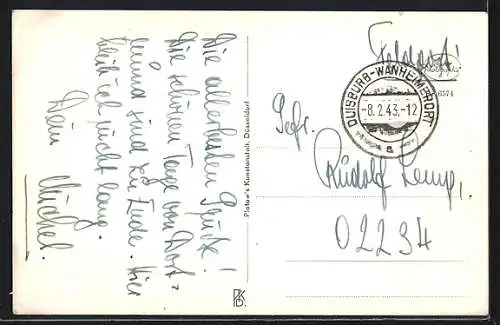 Die allerbesten Grüße!
Die schönen Tage von Dort=
mund sind zu Ende. Hier
bleib ich nicht lang.
Dein Michel.
Platow's Kunstanstalt, Düsseldorf
PKD.
Feldpost!
DUISBURG-WANHEIMERORT
-8.2.43.-12
a
6574
Gefr.
Rudolf Lemp,
02234